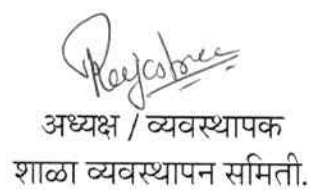 Rayashree
अध्यक्ष / व्यवस्थापक
शाळा व्यवस्थापन समिती.